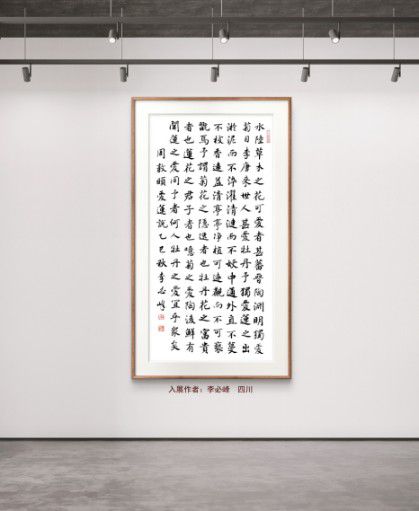 水陸草木之花可愛者甚蕃晉陶淵明獨愛
菊自李唐來世人甚愛牡丹予獨愛蓮之出
淤泥而不染濯清漣而不妖中通外直不蔓
不枝香遠益清亭亭净植可遠觀而不可褻
翫焉予謂菊花之隐逸者也牡丹花之富貴
者也蓮花之君子者也噫菊之愛陶後鮮有
聞蓮之愛同予者何人牡丹之愛宜乎衆矣
周敦頤愛蓮説乙巳秋李必峰
入展作者：李必峰　四川